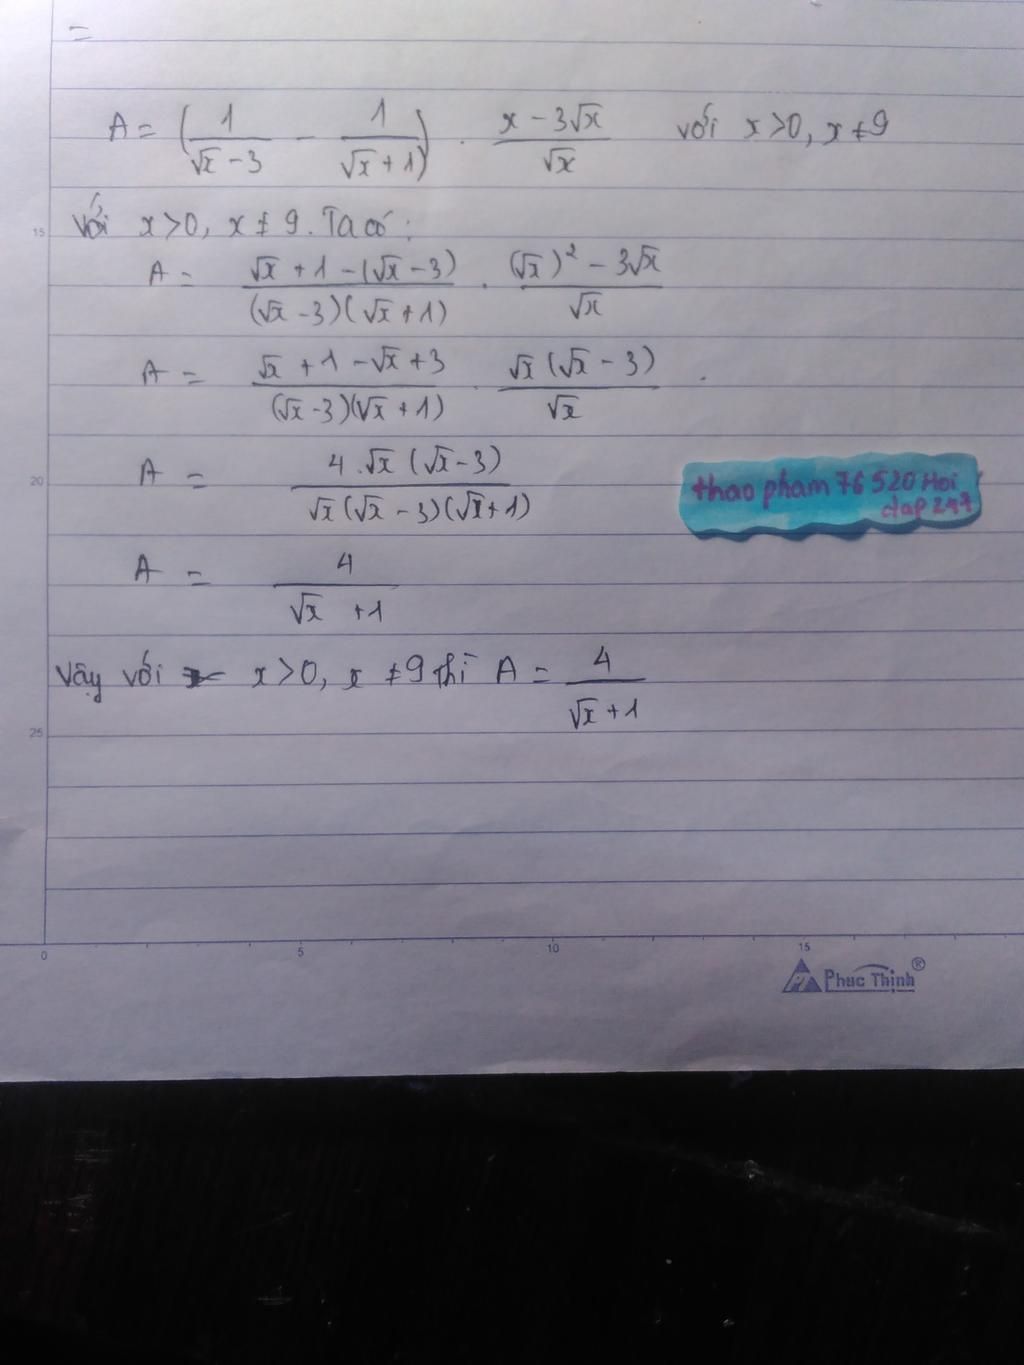 =
A = (1/(√x - 3) - 1/(√x + 1)) . (x - 3√x)/√x với x > 0, x ≠ 9
Với x > 0, x ≠ 9. Ta có:
15
A = (√x + 1 - (√x - 3))/((√x - 3)(√x + 1)) . ((√x)² - 3√x)/√x
A = (√x + 1 - √x + 3)/((√x - 3)(√x + 1)) . √x(√x - 3)/√x .
A = 4.√x(√x - 3)/(√x(√x - 3)(√x + 1))
20
thao pham 76 520 Hoi
dap 247
A = 4/(√x + 1)
Vậy với x > 0, x ≠ 9 thì A = 4/(√x + 1)
25
0 5 10 15
Phuc Thịnh ®